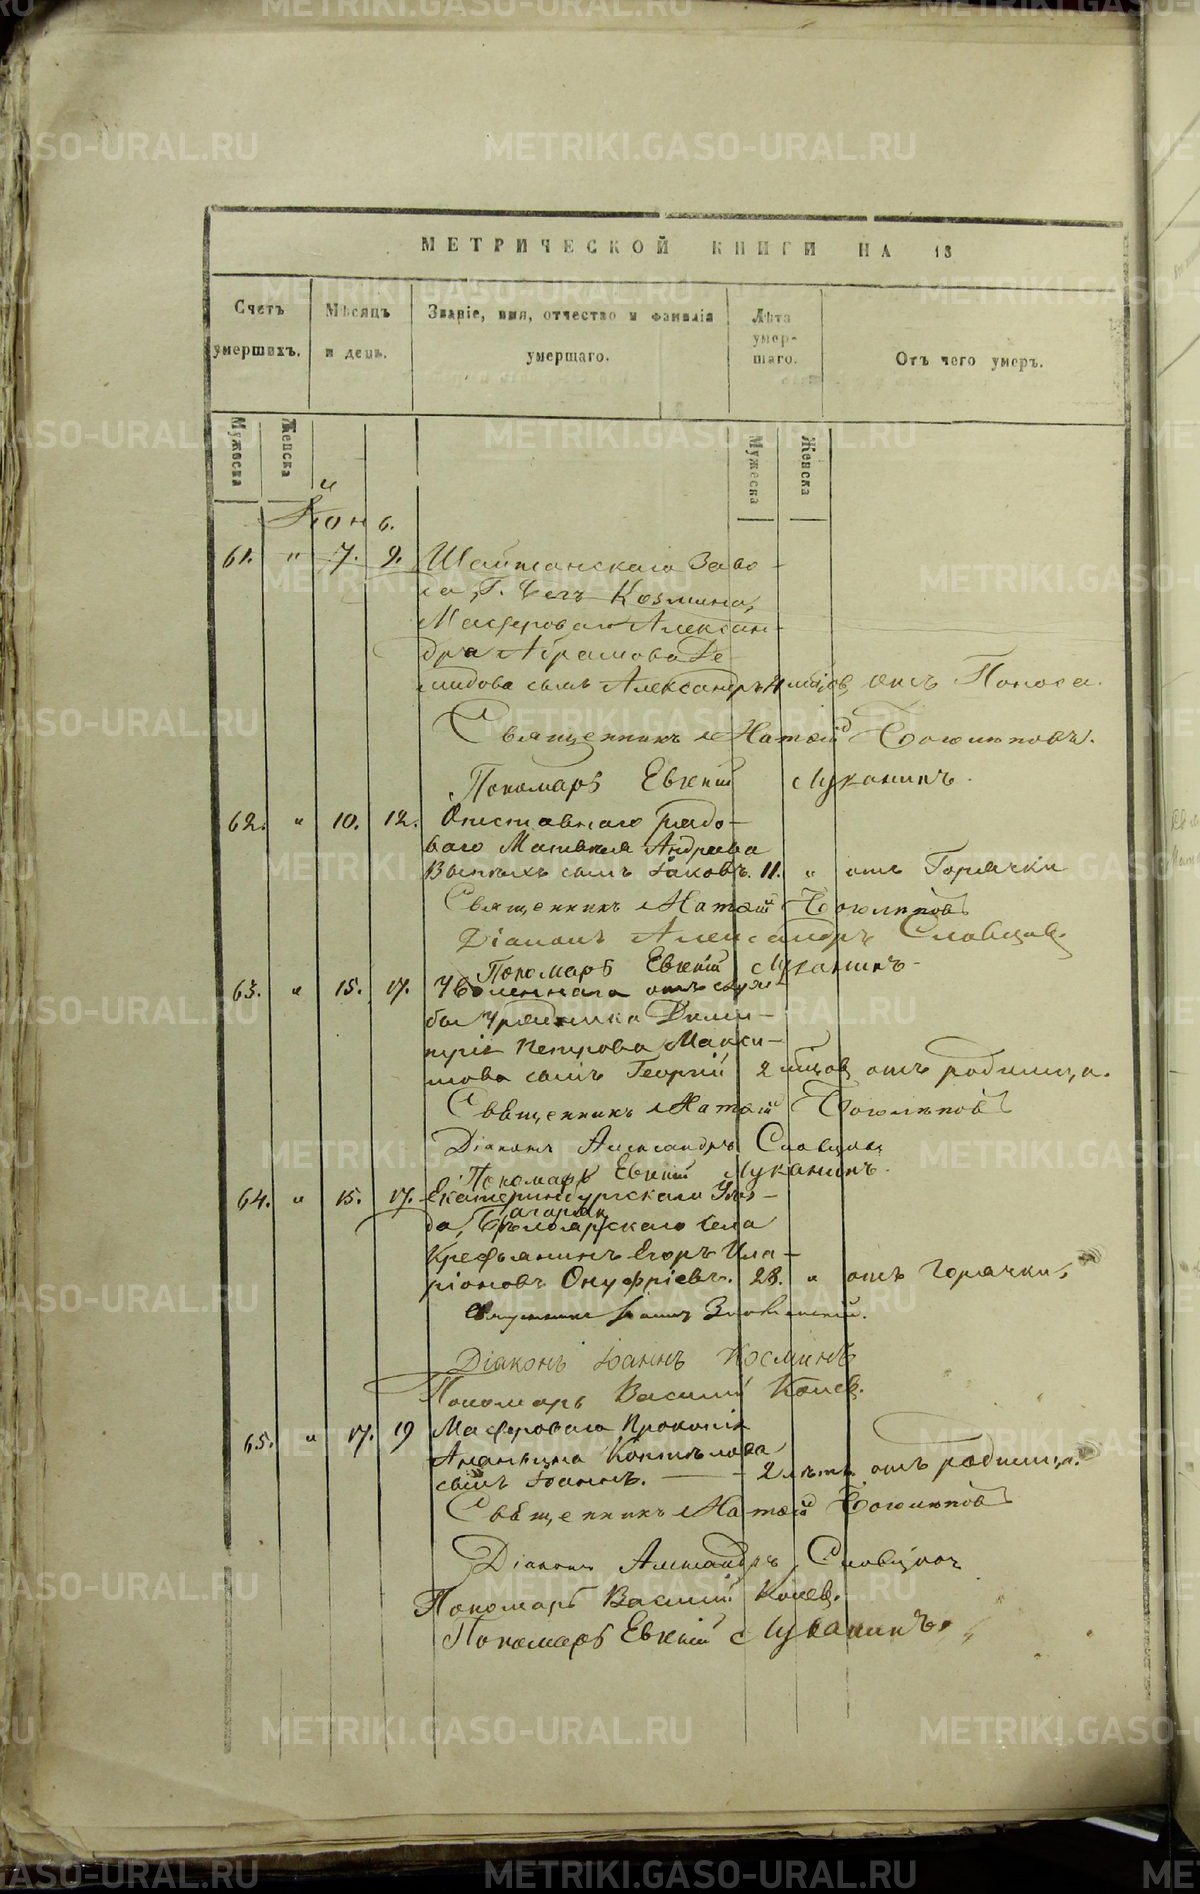 МЕТРИЧЕСКОЙ КНИГИ НА 18
Счетъ умершихъ.
Мѣсяцъ и день.
Званіе, имя, отчество и фамилія умершаго.
Лѣта умер-
шаго.
Отъ чего умеръ.
Мужеска
Женска
Мужеска
Женска
61. " 7. 9. Шайтанскаго Заво-
да, Г. Козмина,
Мастероваго Алексан-
дра Абрамова Де-
мидова сынъ Александръ отъ Поноса.
Священникъ
Пономарь Евгеній Луканинъ.
62. " 10. 12. Отставнаго рядо-
ваго Матвѣя Андреева
сынъ Іаковъ. 11. " отъ Горячки
Священникъ
Діаконъ Александръ Словцовъ
Пономарь Евгеній Луканинъ.
63. " 15. 17. Уволеннаго отъ служ-
бы Урядника Дими-
трія Петрова Макси-
мова сынъ Георгій 2 отъ родимца.
Священникъ
Діаконъ Александръ Словцовъ
Пономарь Евгеній Луканинъ.
64. " 15. 17. Екатеринбургскаго Уѣз-
да, села
Крестьянинъ Егоръ Ила-
ріоновъ Онуфріевъ. 28. " отъ Горячки.
Священникъ Іоаннъ
Діаконъ Іоаннъ Косминъ
Пономарь Василій Коневъ.
65. " 17. 19 Мастероваго Прокопія
Ананьина
сынъ Іоаннъ. — 2 лѣтъ отъ родимца.
Священникъ
Діаконъ Александръ Словцовъ
Пономарь Василій Коневъ.
Пономарь Евгеній Луканинъ.
METRIKI.GASO-URAL.RU